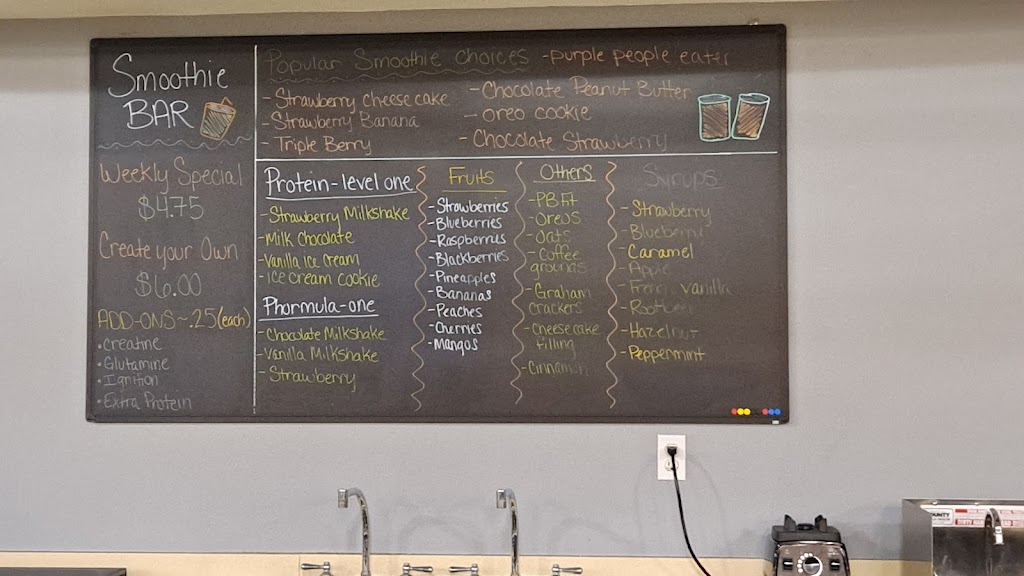 Smoothie
BAR
Weekly Special
$4.75
Create your Own
$6.00
ADD-ONS-.25(each)
•creatine
•Glutamine
•Ignition
•Extra Protein
Popular Smoothie Choices -purple people eater
-Strawberry cheesecake
-Strawberry Banana
-Triple Berry
-Chocolate Peanut Butter
-oreo cookie
-Chocolate Strawberry
Protein-level one
-Strawberry Milkshake
-Milk Chocolate
-Vanilla ice cream
-ice cream cookie
Phormula-one
-Chocolate Milkshake
-Vanilla Milkshake
-Strawberry
Fruits
-Strawberries
-Blueberries
-Raspberries
-Blackberries
-Pineapples
-Bananas
-Peaches
-Cherries
-Mangos
Others
-PBFit
-Oreos
-Oats
-Coffee
grounds
-Graham
crackers
-cheesecake
filling
-Cinnamon
Syrups
-Strawberry
-Blueberry
-Caramel
-Apple
-French vanilla
-Rootbeer
-Hazelnut
-Peppermint